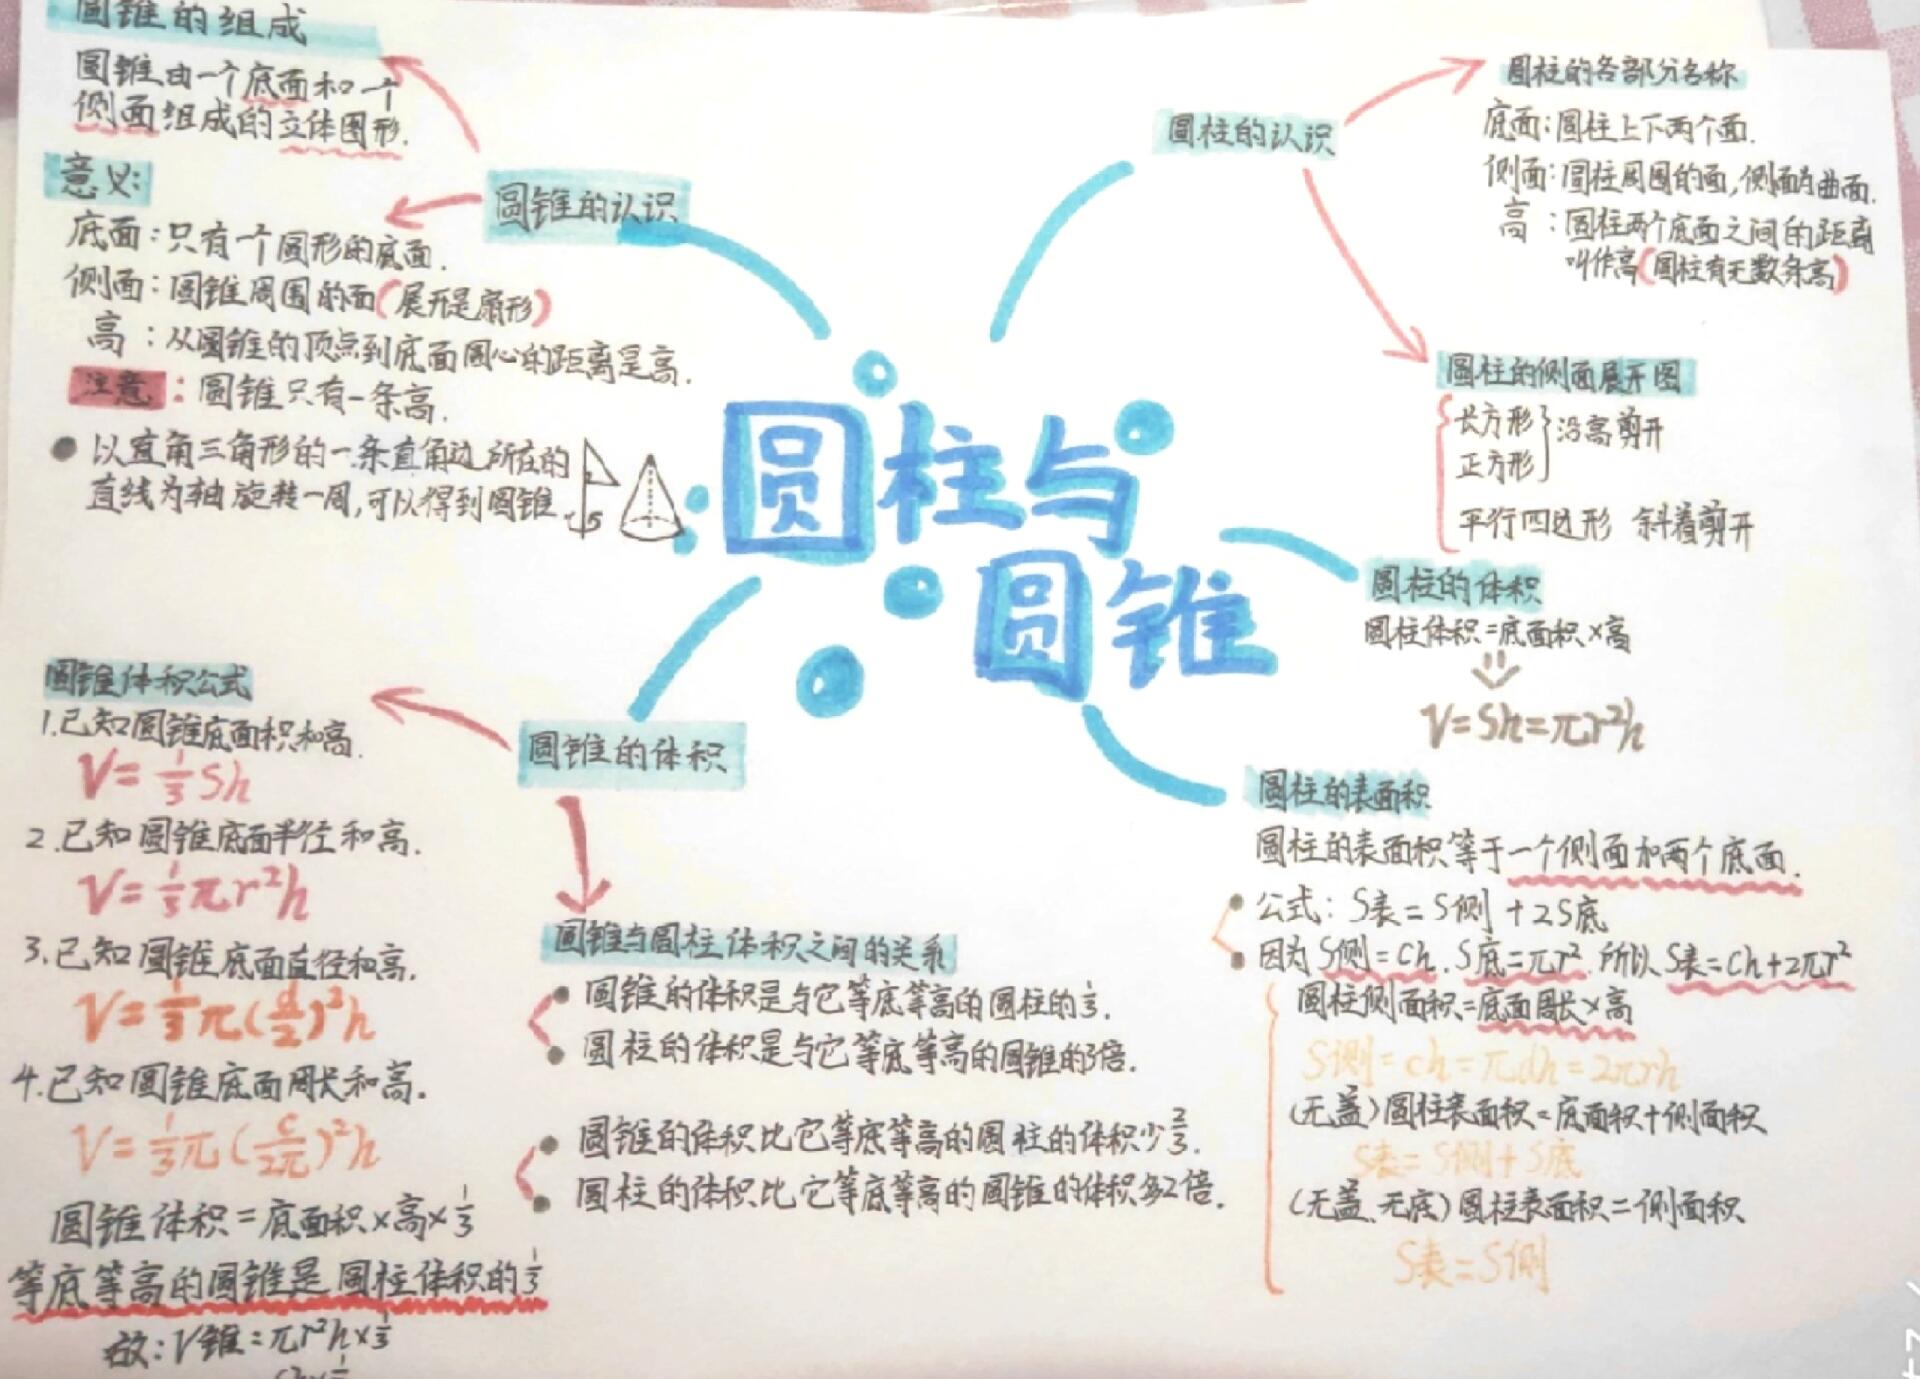 圆锥的组成
圆锥由一个底面和一个
侧面组成的立体图形.
意义:
底面:只有一个圆形的底面.
侧面:圆锥周围的面(展开是扇形)
高:从圆锥的顶点到底面圆心的距离是高.
注意:圆锥只有一条高.
以直角三角形的一条直角边所在的
直线为轴旋转一周,可以得到圆锥.
圆锥的认识
圆柱与
圆锥
圆柱的认识
圆柱的各部分名称
底面:圆柱上下两个面.
侧面:圆柱周围的面,侧面为曲面.
高:圆柱两个底面之间的距离
叫作高(圆柱有无数条高)
圆柱的侧面展开图
长方形
正方形
沿高剪开
平行四边形 斜着剪开
圆柱的体积
圆柱体积=底面积×高
V=Sh=πr²h
圆柱的表面积
圆柱的表面积等于一个侧面和两个底面.
公式:S表=S侧+2S底
因为S侧=Ch.S底=πr².所以S表=Ch+2πr²
圆柱侧面积=底面周长×高
S侧=ch=πdh=2πrh
(无盖)圆柱表面积=底面积+侧面积
S表=S侧+S底
(无盖、无底)圆柱表面积=侧面积
S表=S侧
圆锥的体积
圆锥体积公式
1.已知圆锥底面积和高.
V=⅓Sh
2.已知圆锥底面半径和高.
V=⅓πr²h
3.已知圆锥底面直径和高.
V=⅓π(d/2)²h
4.已知圆锥底面周长和高.
V=⅓π(C/2π)²h
圆锥体积=底面积×高×⅓
等底等高的圆锥是圆柱体积的⅓
故:V锥=πr²h×⅓
圆锥与圆柱体积之间的关系
圆锥的体积是与它等底等高的圆柱的⅓.
圆柱的体积是与它等底等高的圆锥的3倍.
圆锥的体积比它等底等高的圆柱的体积少⅔.
圆柱的体积比它等底等高的圆锥的体积多2倍.